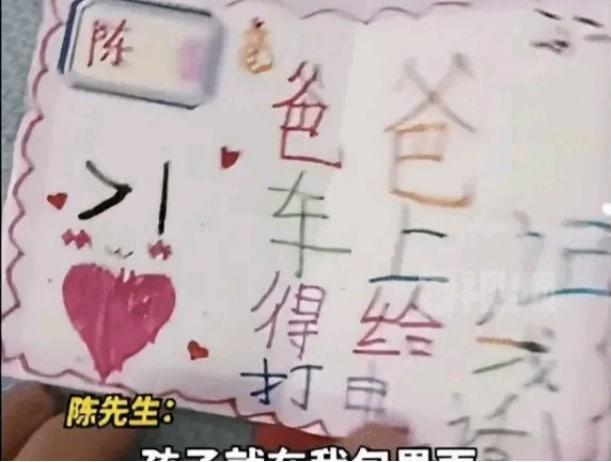 陈
爸爸
车上记
得给我
打电
陈先生：
孩子就在我包里面